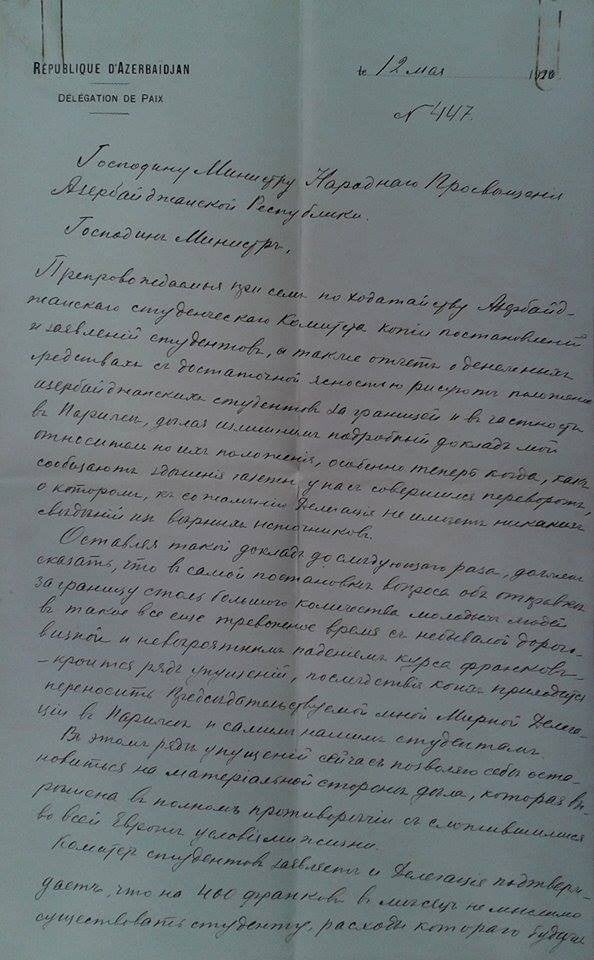 RÉPUBLIQUE D'AZERBAÏDJAN
DÉLÉGATION DE PAIX
le 12 мая 1920
№ 447.
Господину Министру Народнаго Просвѣщенія
Азербайджанской Республики.
Господинъ Министръ,
Препровождаемыя при семъ по ходатайству Азербайд-
жанскаго студенческаго Комитета копіи постановленій
и заявленій студентовъ, а также отчетъ о денежныхъ
средствахъ съ достаточной ясностью рисуютъ положеніе
азербайджанскихъ студентовъ за границей и въ частности
въ Парижѣ, дѣлая излишнимъ подробный докладъ мой
относительно ихъ положенія, особенно теперь когда, какъ
сообщаютъ здѣшнія газеты, у насъ совершился переворотъ,
о которомъ, къ сожалѣнію Делегація не имѣетъ никакихъ
свѣдѣній изъ вѣрныхъ источниковъ.
Оставляя такой докладъ до слѣдующаго раза, долженъ
сказать, что въ самой постановкѣ вопроса объ отправкѣ
за границу столь большого количества молодыхъ людей
въ такое все еще тревожное время съ небывалой дорого-
визной и невѣроятнымъ паденіемъ курса франковъ –
– кроится рядъ упущеній, послѣдствія коихъ приходится
переносить Предсѣдательствуемой мной Мирной Делега-
ціи въ Парижѣ и самимъ нашимъ студентамъ.
Въ этомъ ряду упущеній сейчасъ позволяю себѣ оста-
новиться на матеріальной сторонѣ дѣла, которая
въ полномъ противорѣчіи съ сложившимися
во всей Европѣ условіями жизни.
Комитетъ студентовъ заявляетъ и Делегація подтверж-
даетъ, что на 400 франковъ въ мѣсяцъ не мыслимо
существовать студенту, расходы котораго будучи